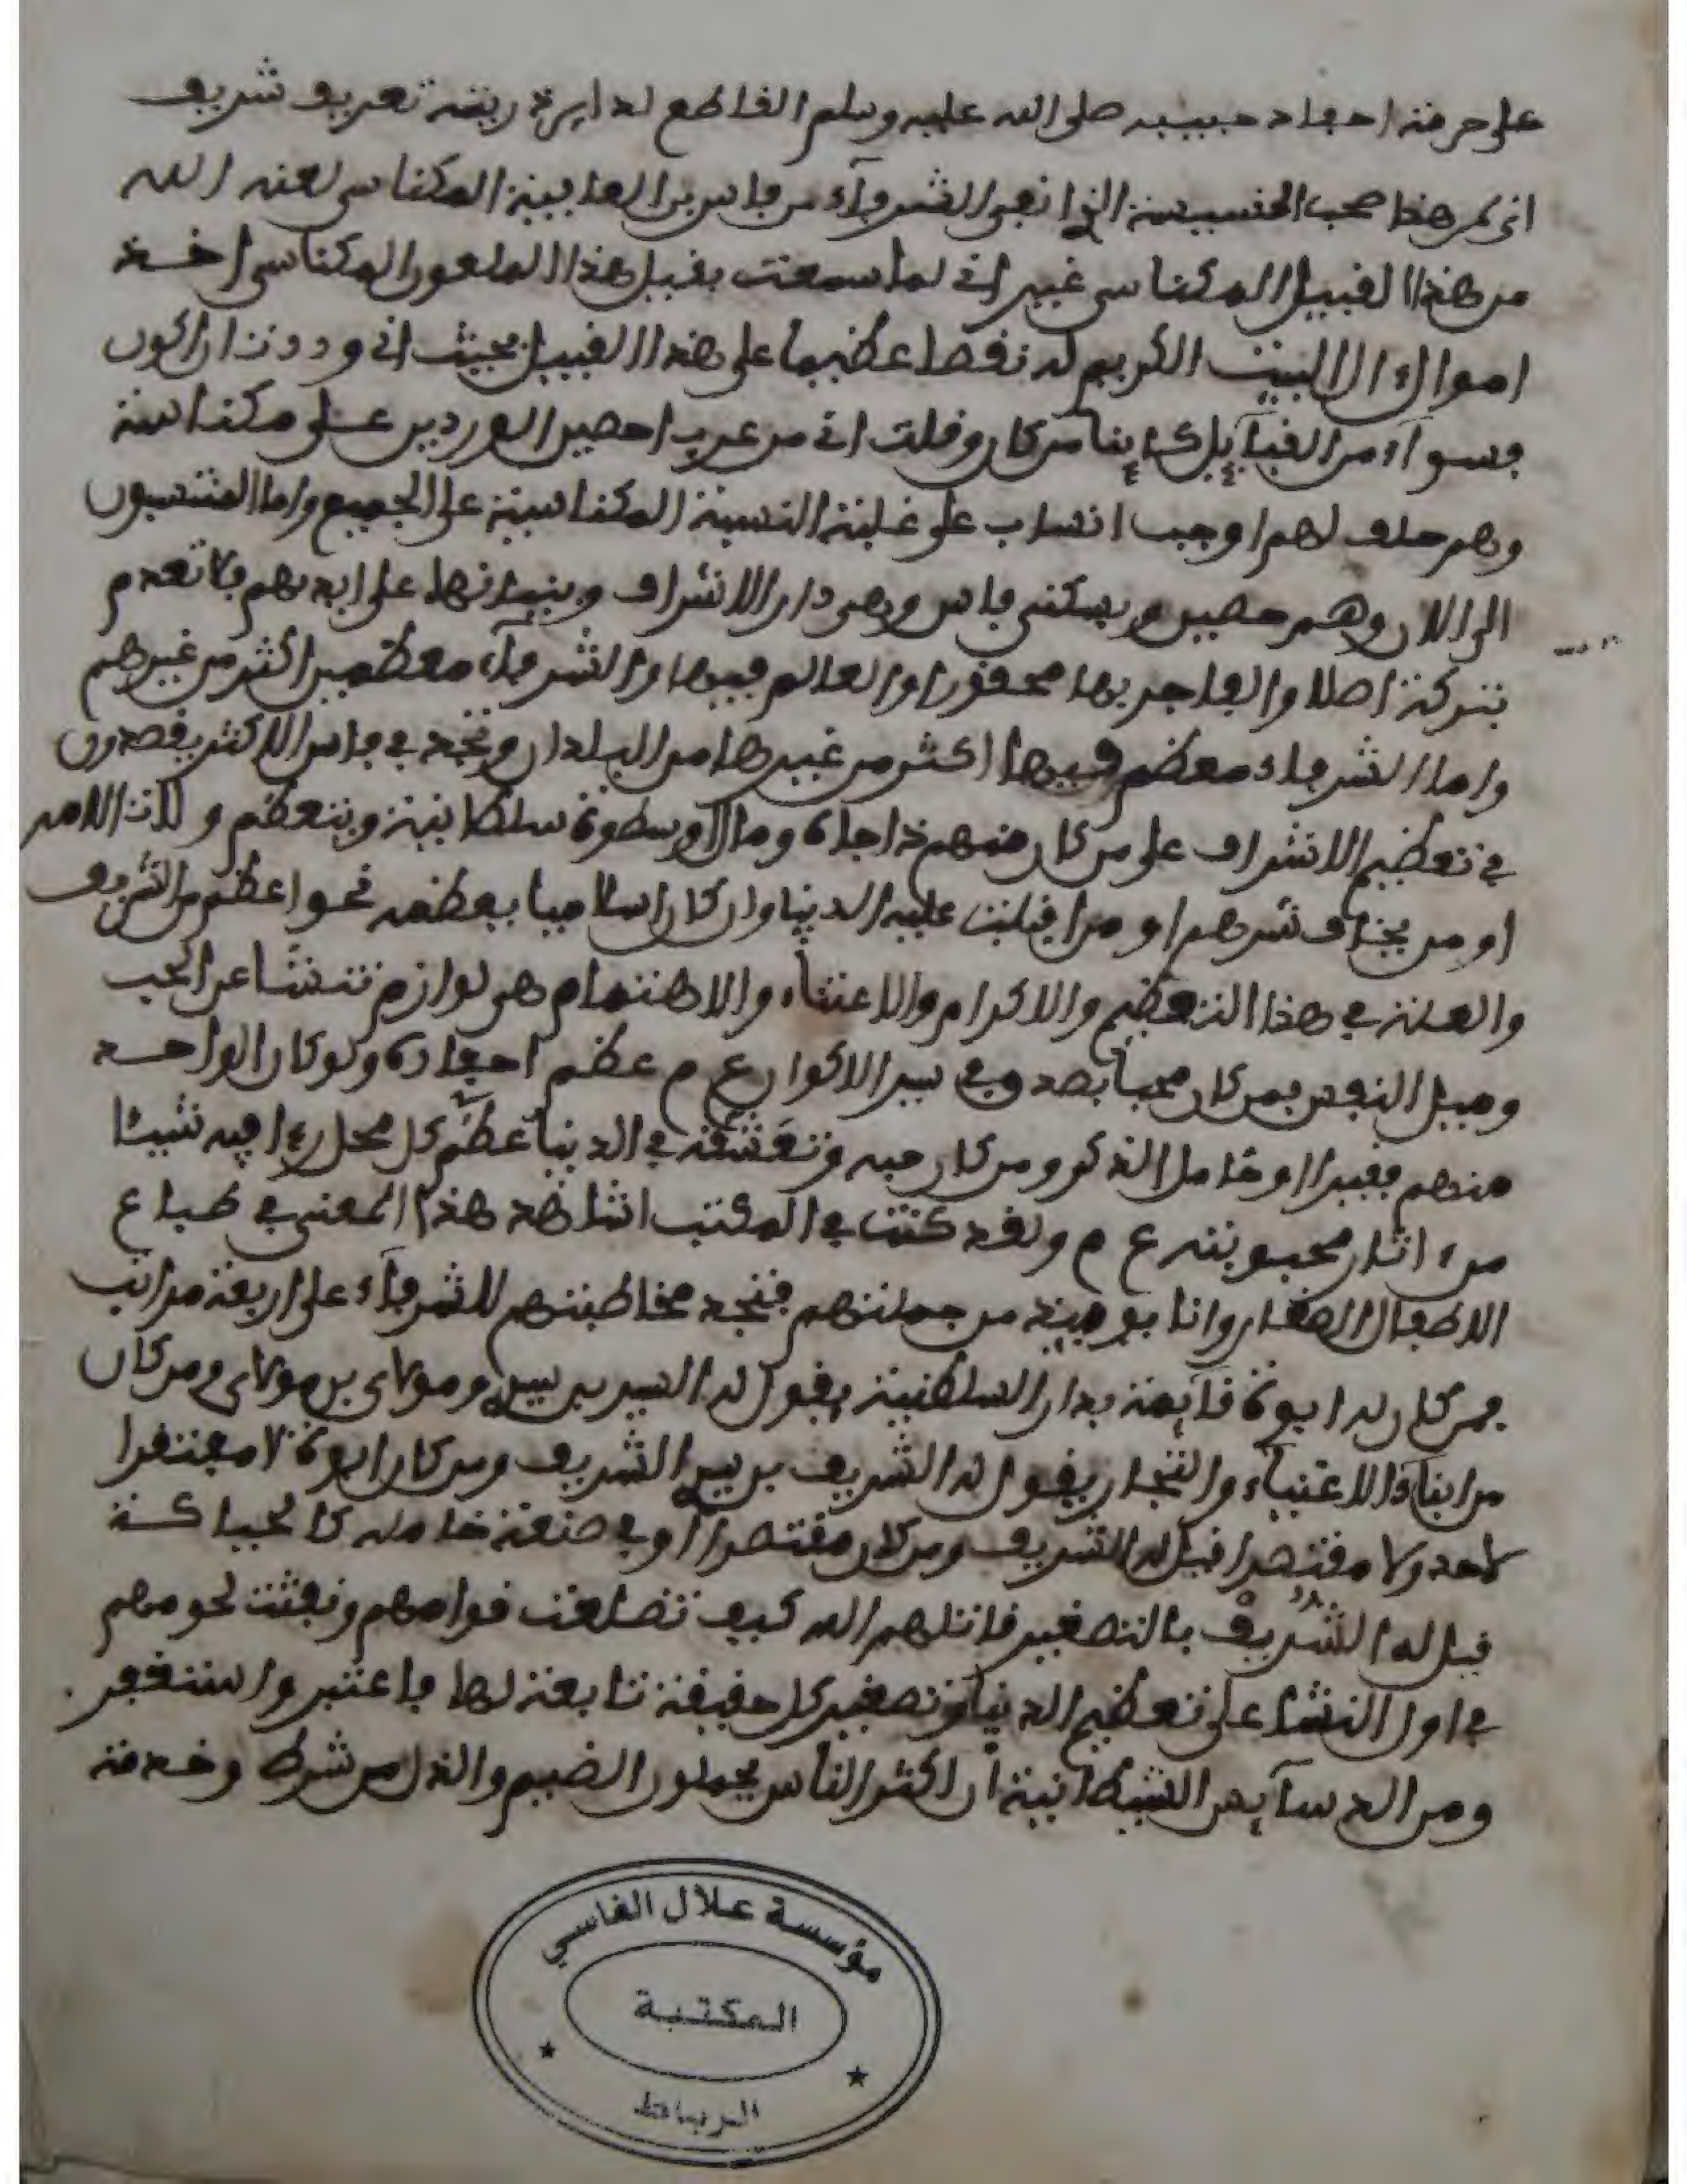 على حرمة احفاد حبيبه صلى الله عليه وسلم القاطع لدابرة ريقه تعريف شريف
انى لمر هذا صحب الخسيسة الذ انفى الشرفآء من فاس بن العابينة المكناسى لعنه الله
من هذا القبيل المكناسى غير انى لما سمعت بفبل هذا الملعون المكناسى اخذ
اموال ال البيت الكريم نقصا عظيما على هذا القبيل بحيث انى وددت ان اكون
بسوآء من القبآيل كاينا من كان وقلت انى من عرب احصين الوردين على مكناسة
وهم حلف لهم اوجب انتساب على غلبة النسبة المكناسية على الجميع واما المنتسبون
الى الان وهم حصين وبسكنى فاس وهى دار الاشراف وبنيانها على ايديهم فلا تعدم
بتركة اصلا والفاجر بها محقورا والعالم فيها والشرفآء معظمين اكثر من غيرهم
واما الشرفاء معظم فيها اكثر من غيرها من البلدان وتجد فى فاس الاكثر يقصدون
فى تعظيم الاشراف على من كان منهم ذا جاه ومال او سطوة سلطانية ويتعظم ولات الامر
او من يخاف شرهم او من اقبلت عليه الدنيا وان كان اسلاميا يعظمه نحوا عظم من الشريف
والعلة فى هذا التعظيم والاكرام والاعتناء والاهتمام هى لوازم تنشا عن الحب
وميل النفس فمن كان محبا بصدق فى سيد الاكوان ع م عظم احفاده ولو كان الواحد
منهم فقيرا او خامل الذكر ومن كان حبه وتعشقه فى الدنيا عظم كل محل رءا فيه شيئا
من ءاثار محبوبته ع م ولقد كنت فى المكتب اشاهد هذا المعنى فى طباع
الاطفال الصغار وانا يوميذ من جملتهم فتجد مخاطبتهم للشرفآء على اربعة مراتب
فمن كان له ابوة قايمة بدار السلطنية يقول له السيد بن سيد ومولاى بن مولاى ومن كان
من ابناء الاغنياء والتجار يقول له الشريف بن سيد الشريف ومن كان ابوه لا مفتقرا
لاحد ولا مقتصرا قيل له الشريف ومن كان مقتصرا او فى صنعة خاملة كالحياكة
قيل له الشريف بالتصغير قاتلهم الله كيف تضلعت قوامهم ونبثت لحومهم
فى اول النشا على تعظيم الدنيا وتصغير كل حقيقة تابعة لها فاعتبر واستغفر
ومن الدسآيس الشيطانية ان اكثر الناس يحملون الضيم والذل من شرطه وخدمة
مؤسسة علال الفاسي
المكتبة
الرباط